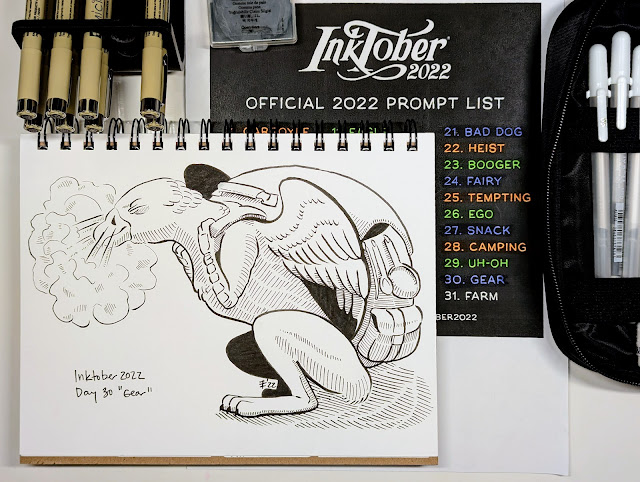 INKTOBER
2022
OFFICIAL 2022 PROMPT LIST
21. BAD DOG
22. HEIST
23. BOOGER
24. FAIRY
25. TEMPTING
26. EGO
27. SNACK
28. CAMPING
29. UH-OH
30. GEAR
31. FARM
BER2022
Inktober 2022
Day 30 "Gear"
'22